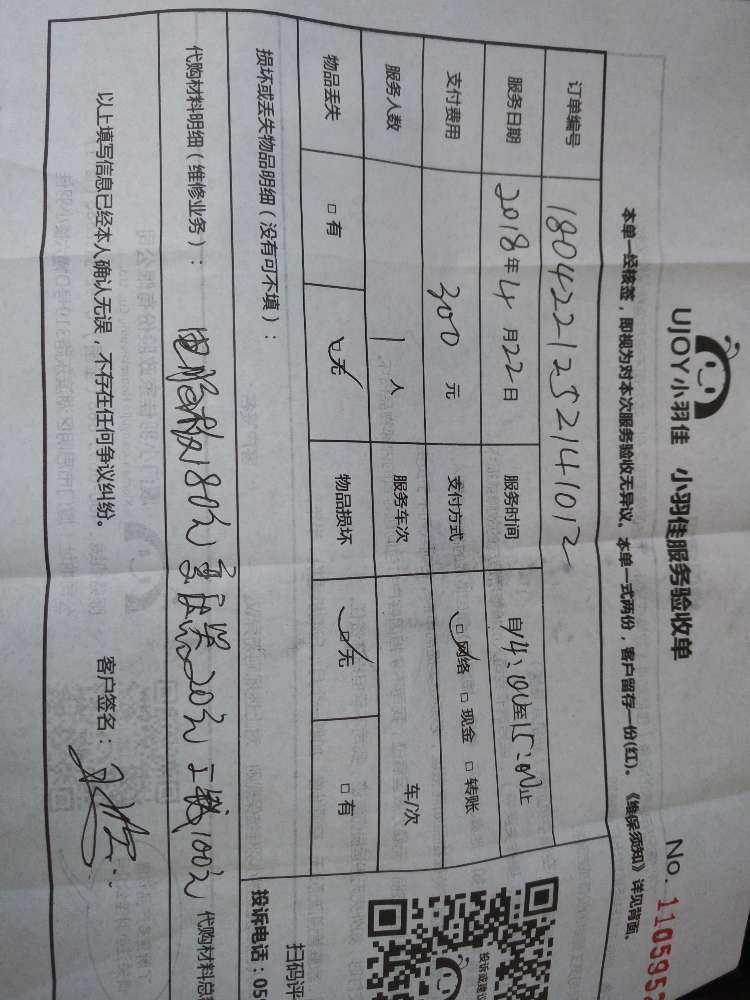 UJOY小羽佳 小羽佳服务验收单
No. 110595
本单一经核签，即视为对本次服务验收无异议。本单一式两份，客户留存一份(红)。《维保须知》详见背面。
订单编号 1804221252141012
服务日期 2018年4月22日 服务时间 自14:00至15:00止
支付费用 300元 支付方式 □网络 □现金 □转账
服务人数 1人 服务车次 车/次
物品丢失 □有 □无 物品损坏 □无 □有
损坏或丢失物品明细（没有可不填）：
扫码评
投诉或建议
投诉电话：05
代购材料明细（维修业务）： 电脑板180元 变压器20元 工钱100元 代购材料总
以上填写信息已经本人确认无误，不存在任何争议纠纷。 客户签名：